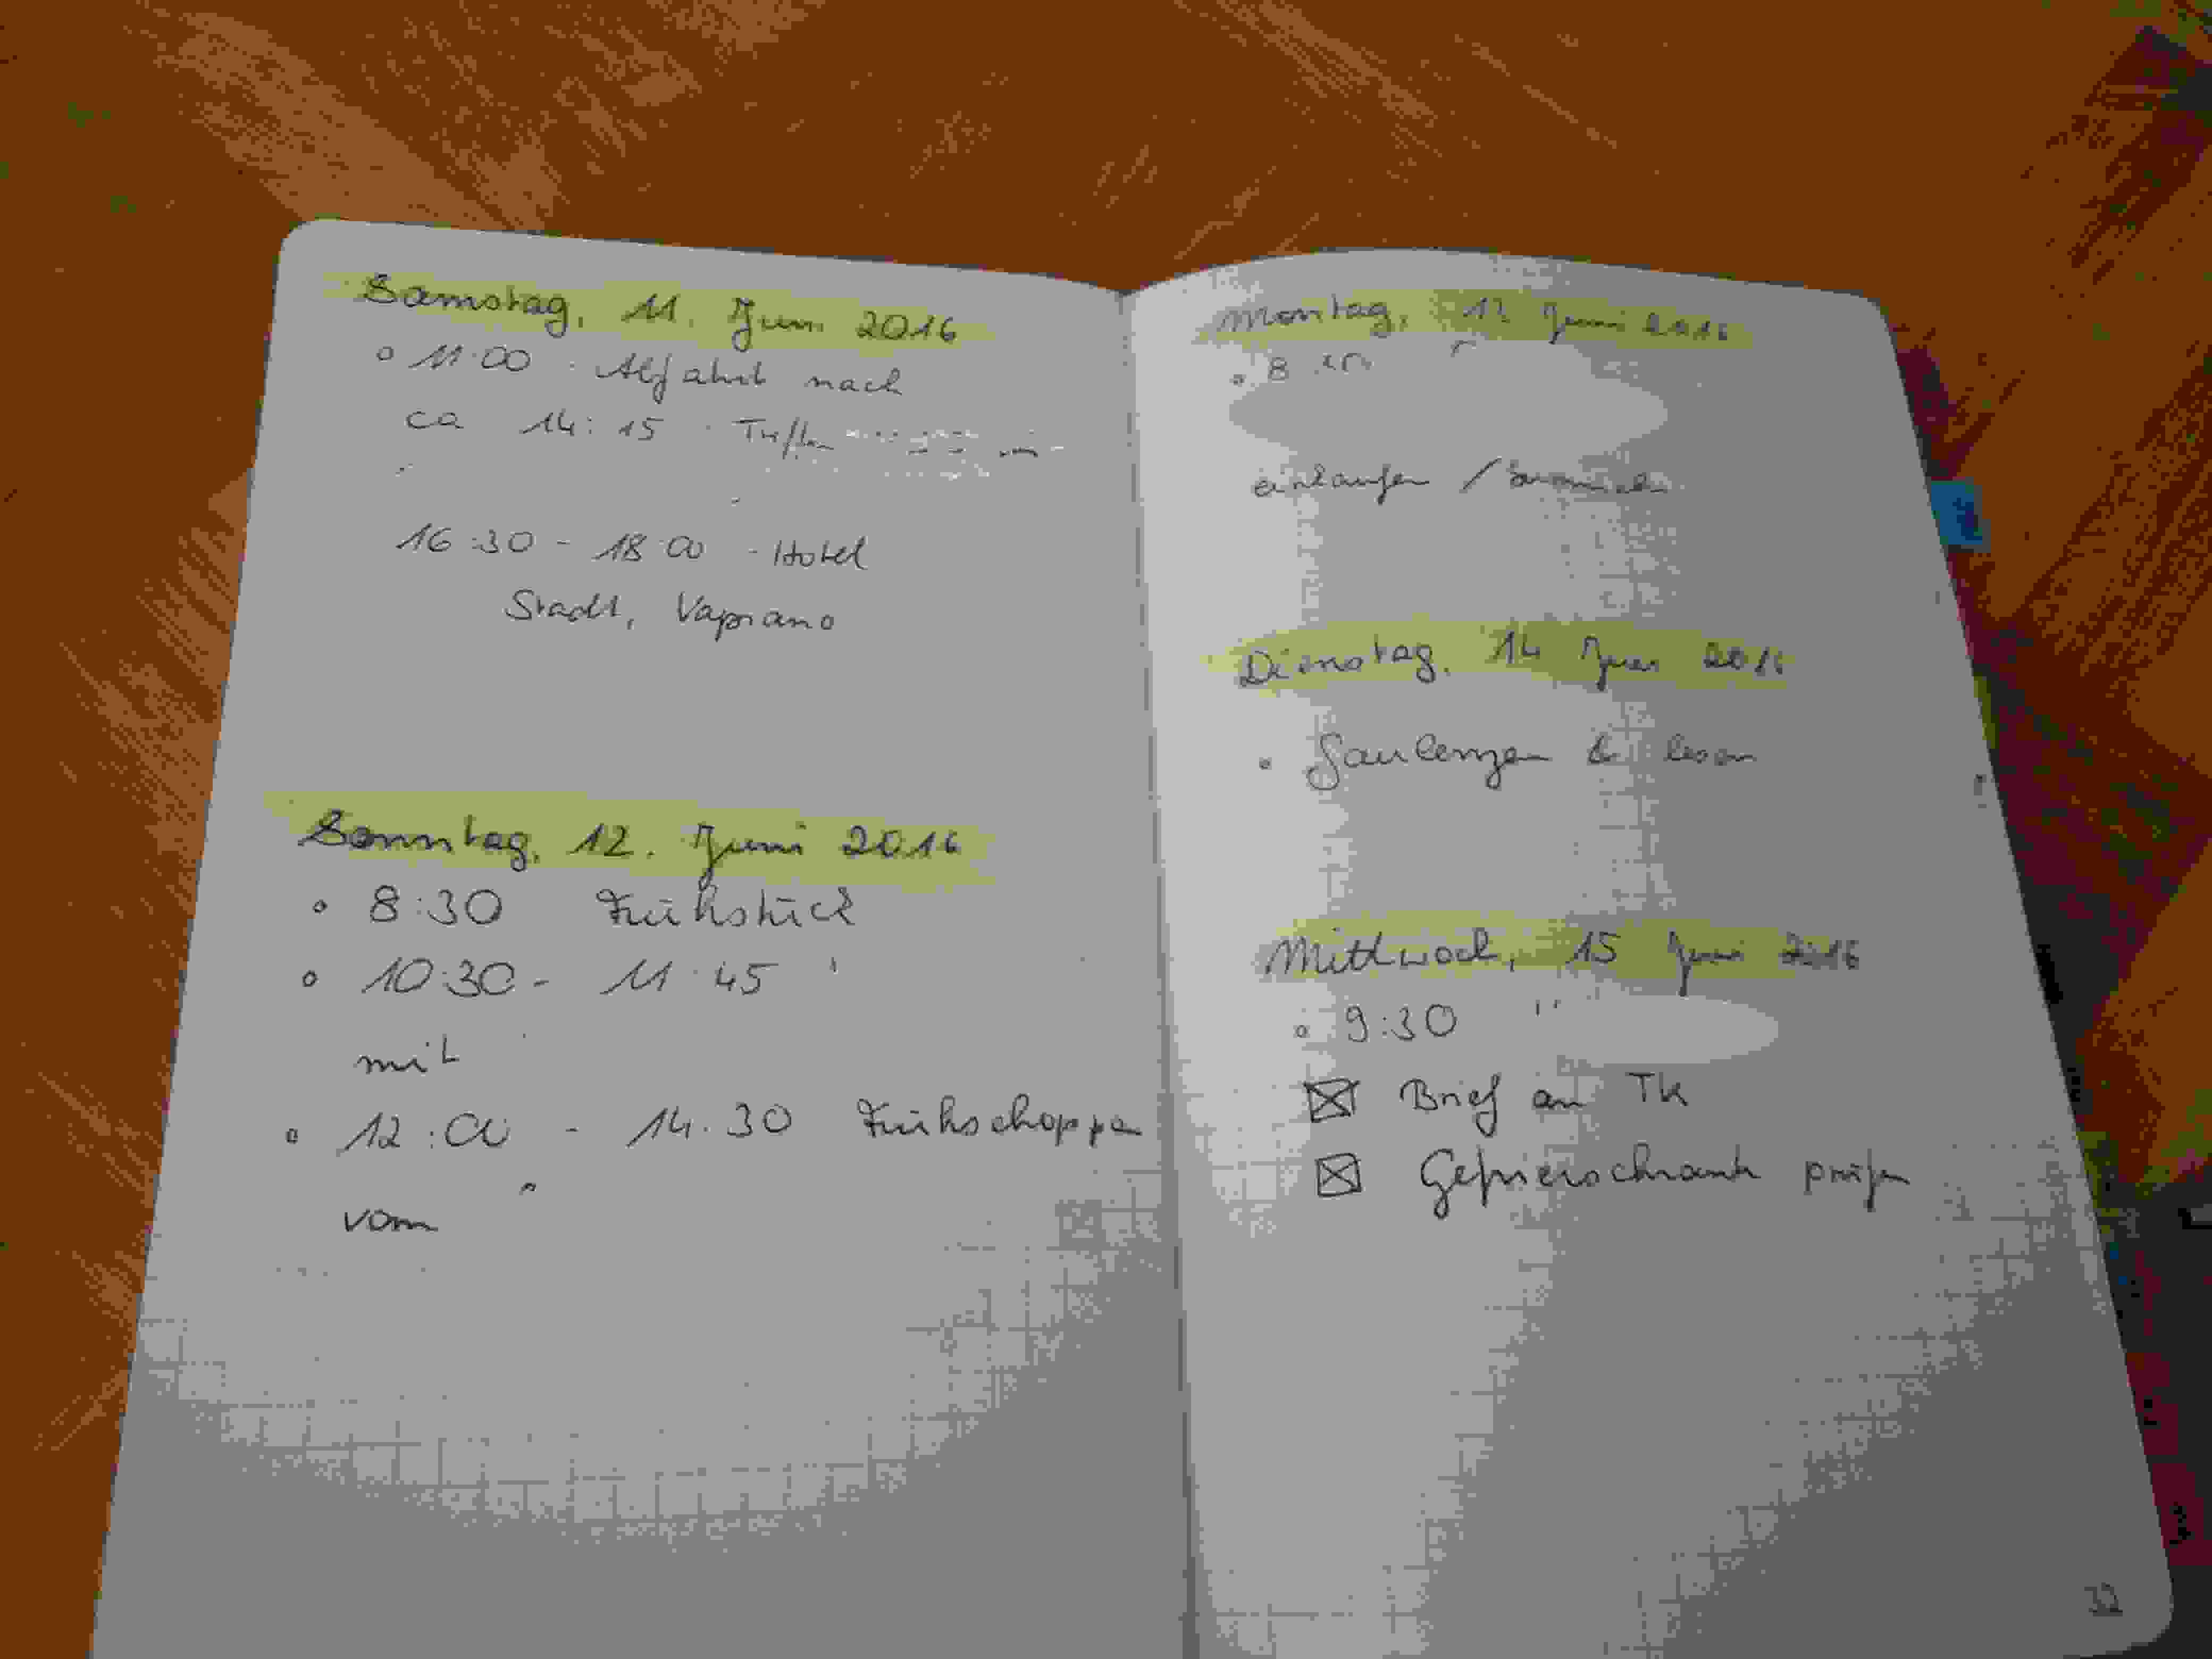 Samstag, 11. Juni 2016
11:00 - Abfahrt nach
ca 14:15 - Treffen
16:30 - 18:00 - Hotel
Stadt, Vapiano
Sonntag, 12. Juni 2016
8:30 Frühstück
10:30 - 11:45
mit
12:00 - 14:30 Frühschoppen
vom
Montag, 13 Juni 2016
8
einkaufen /
Dienstag, 14 Juni 2016
faulenzen & lesen
Mittwoch, 15 Juni 2016
9:30
Brief an TK
Gefrierschrank prüfen